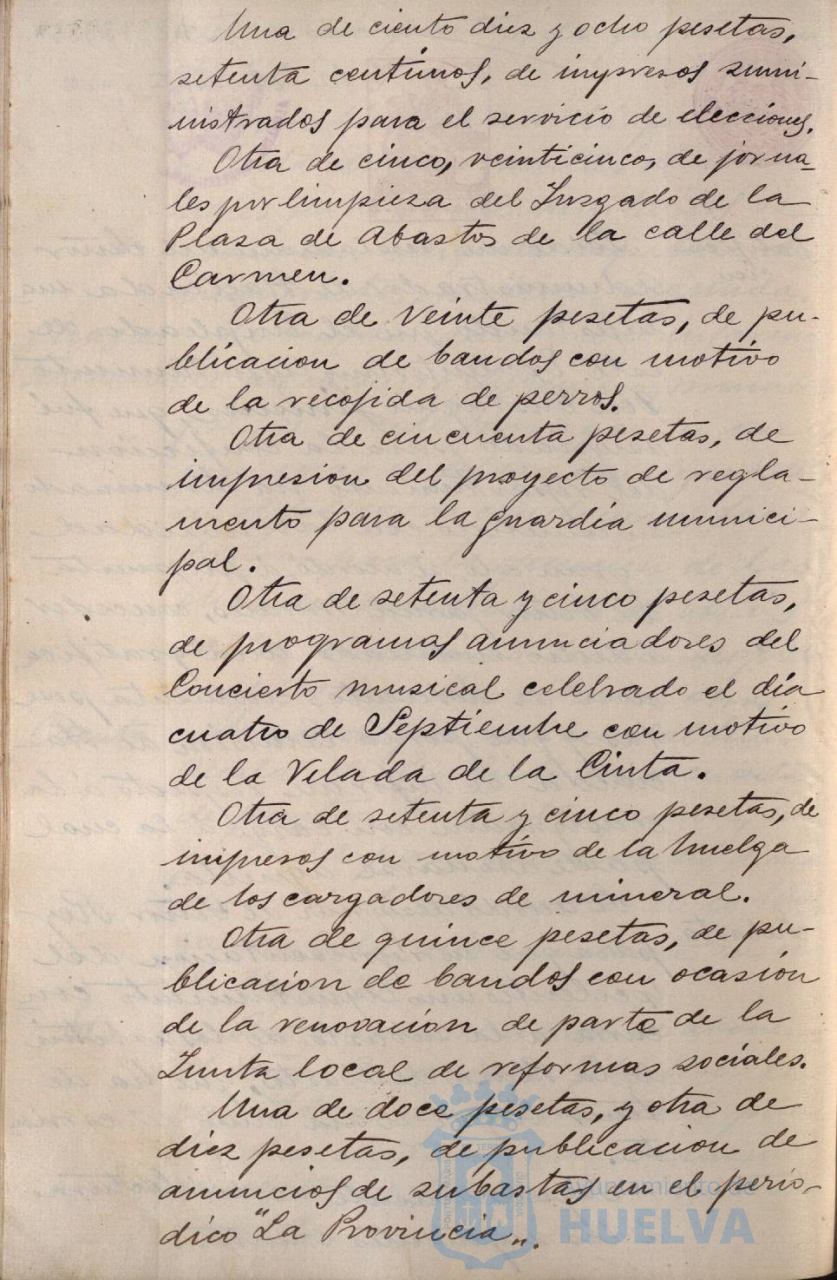 Una de ciento diez y ocho pesetas,
setenta centimos, de impresos sumi-
nistrados para el servicio de elecciones.
Otra de cinco, veinticinco, de jorna-
les por limpieza del Juzgado de la
Plaza de Abastos de la calle del
Carmen.
Otra de veinte pesetas, de pu-
blicacion de bandos con motivo
de la recojida de perros.
Otra de cincuenta pesetas, de
impresion del proyecto de regla-
mento para la guardia munici-
pal.
Otra de setenta y cinco pesetas,
de programas anunciadores del
Concierto musical celebrado el día
cuatro de Septiembre con motivo
de la Velada de la Cinta.
Otra de setenta y cinco pesetas, de
impresos con motivo de la huelga
de los cargadores de mineral.
Otra de quince pesetas, de pu-
blicacion de bandos con ocasión
de la renovación de parte de la
Junta local de reformas sociales.
Una de doce pesetas, y otra de
diez pesetas, de publicacion de
anuncios de subastas en el perió-
dico "La Provincia".
Ayuntamiento de
HUELVA